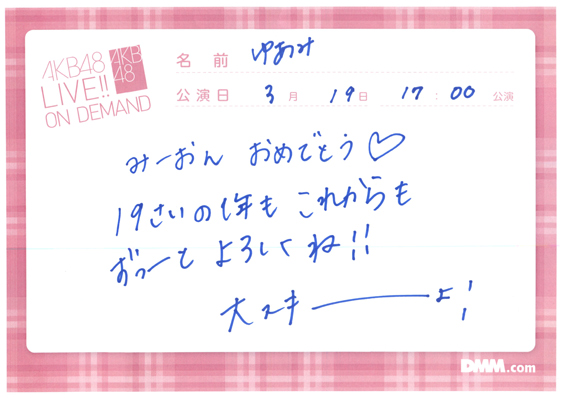 AKB48
LIVE!!
ON DEMAND
AKB
48
名前 ゆあみ
公演日 3月19日 17:00公演
みーおん おめでとう♡
19さいの1年も これからも
ずっーと よろしくね!!
大スキーーーよ!
DMM.com